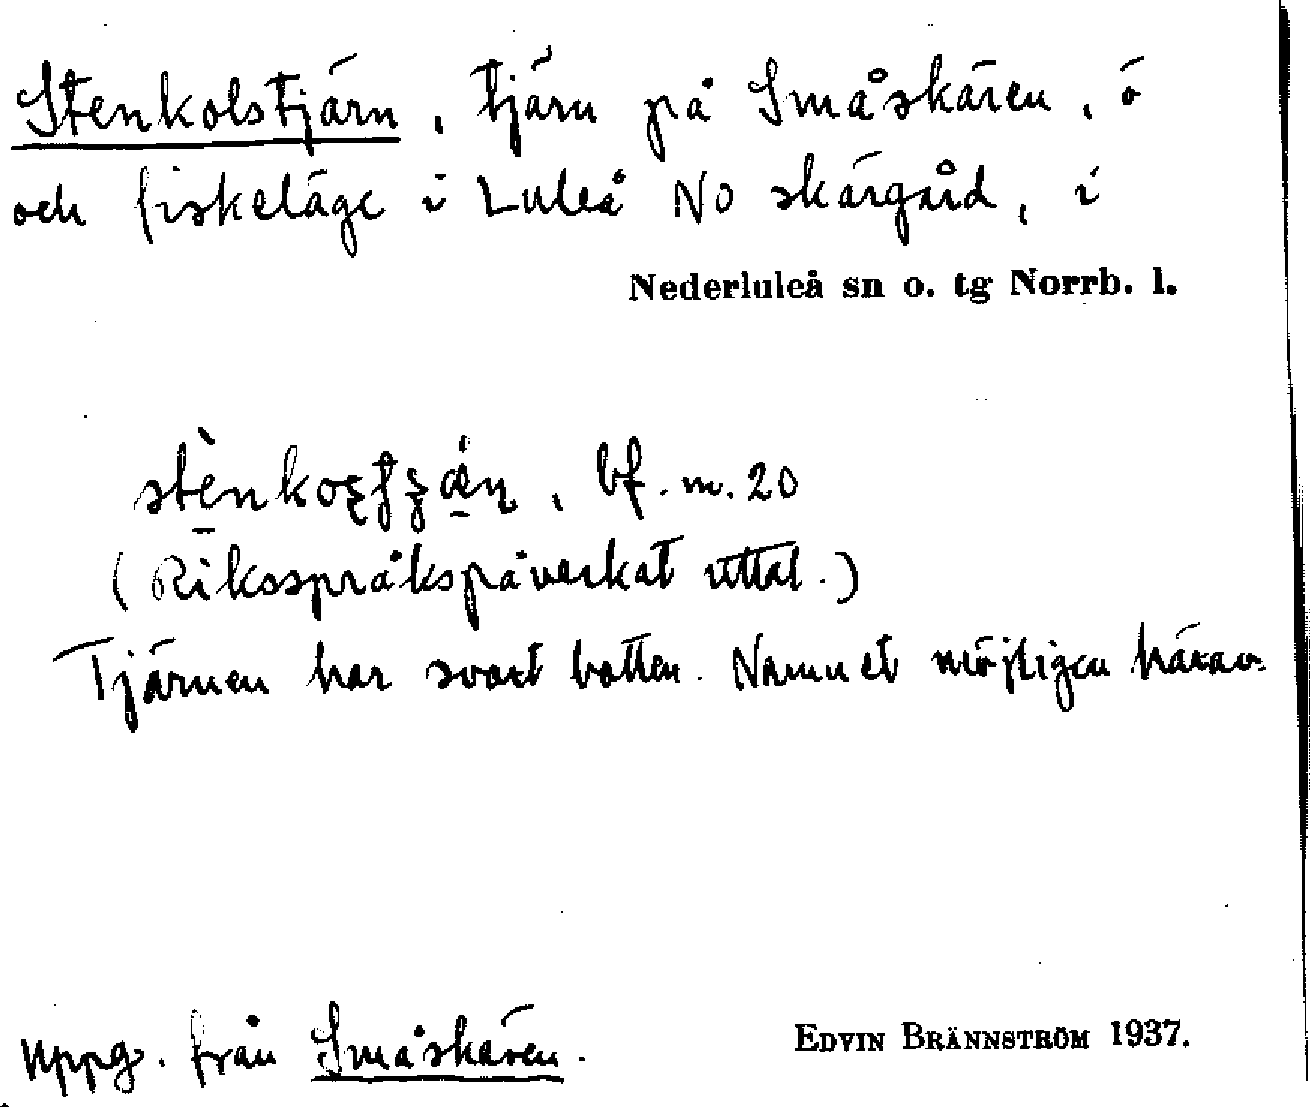 Stenkolstjärn, tjärn på Småskären, ö
och fiskeläge i Luleå No skärgård, i
Nederluleå sn o. tg Norrb. l.
, bf. m. 20
(Riksspråkspåverkat uttal.)
Tjärnen har svart botten. Namnet möjligen härav
uppg. från Småskären.
EDVIN BRÄNNSTRÖM 1937.